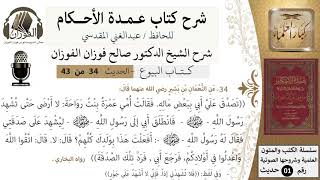 شرح كتاب عمدة الأحكام
للحافظ / عبدالغني المقدسي
شرح الشيخ الدكتور صالح فوزان الفوزان
كتاب البيوع - الحديث 34 من 43
34. عن النُّعْمَانِ بْنِ بَشِيرٍ رضي الله عنهما قال:
(تَصَدَّقَ عَلَيَّ أَبِي بِبَعْضِ مَالِهِ. فَقَالَتْ أُمِّي عَمْرَةُ بِنْتُ رَوَاحَةَ: لا أَرْضَى حَتَّى تُشْهِدَ
رَسُولَ اللَّهِ - ﷺ - فَانْطَلَقَ أَبِي إلَى رَسُولِ اللَّهِ - ﷺ - لِيُشْهِدَ عَلَى صَدَقَتِي
فَقَالَ لَهُ رَسُولُ اللَّهِ - ﷺ -: أَفَعَلْتَ هَذَا بِوَلَدِكَ كُلِّهِمْ؟ قَالَ: لا. قَالَ: اتَّقُوا اللَّهَ
وَاعْدِلُوا فِي أَوْلادِكُمْ، فَرَجَعَ أَبِي، فَرَدَّ تِلْكَ الصَّدَقَةَ)) رواه البخاري.
الفوزان
سلسلة الكتب والمتون
العلمية وشروحها الصوتية
رقم 01 حديث